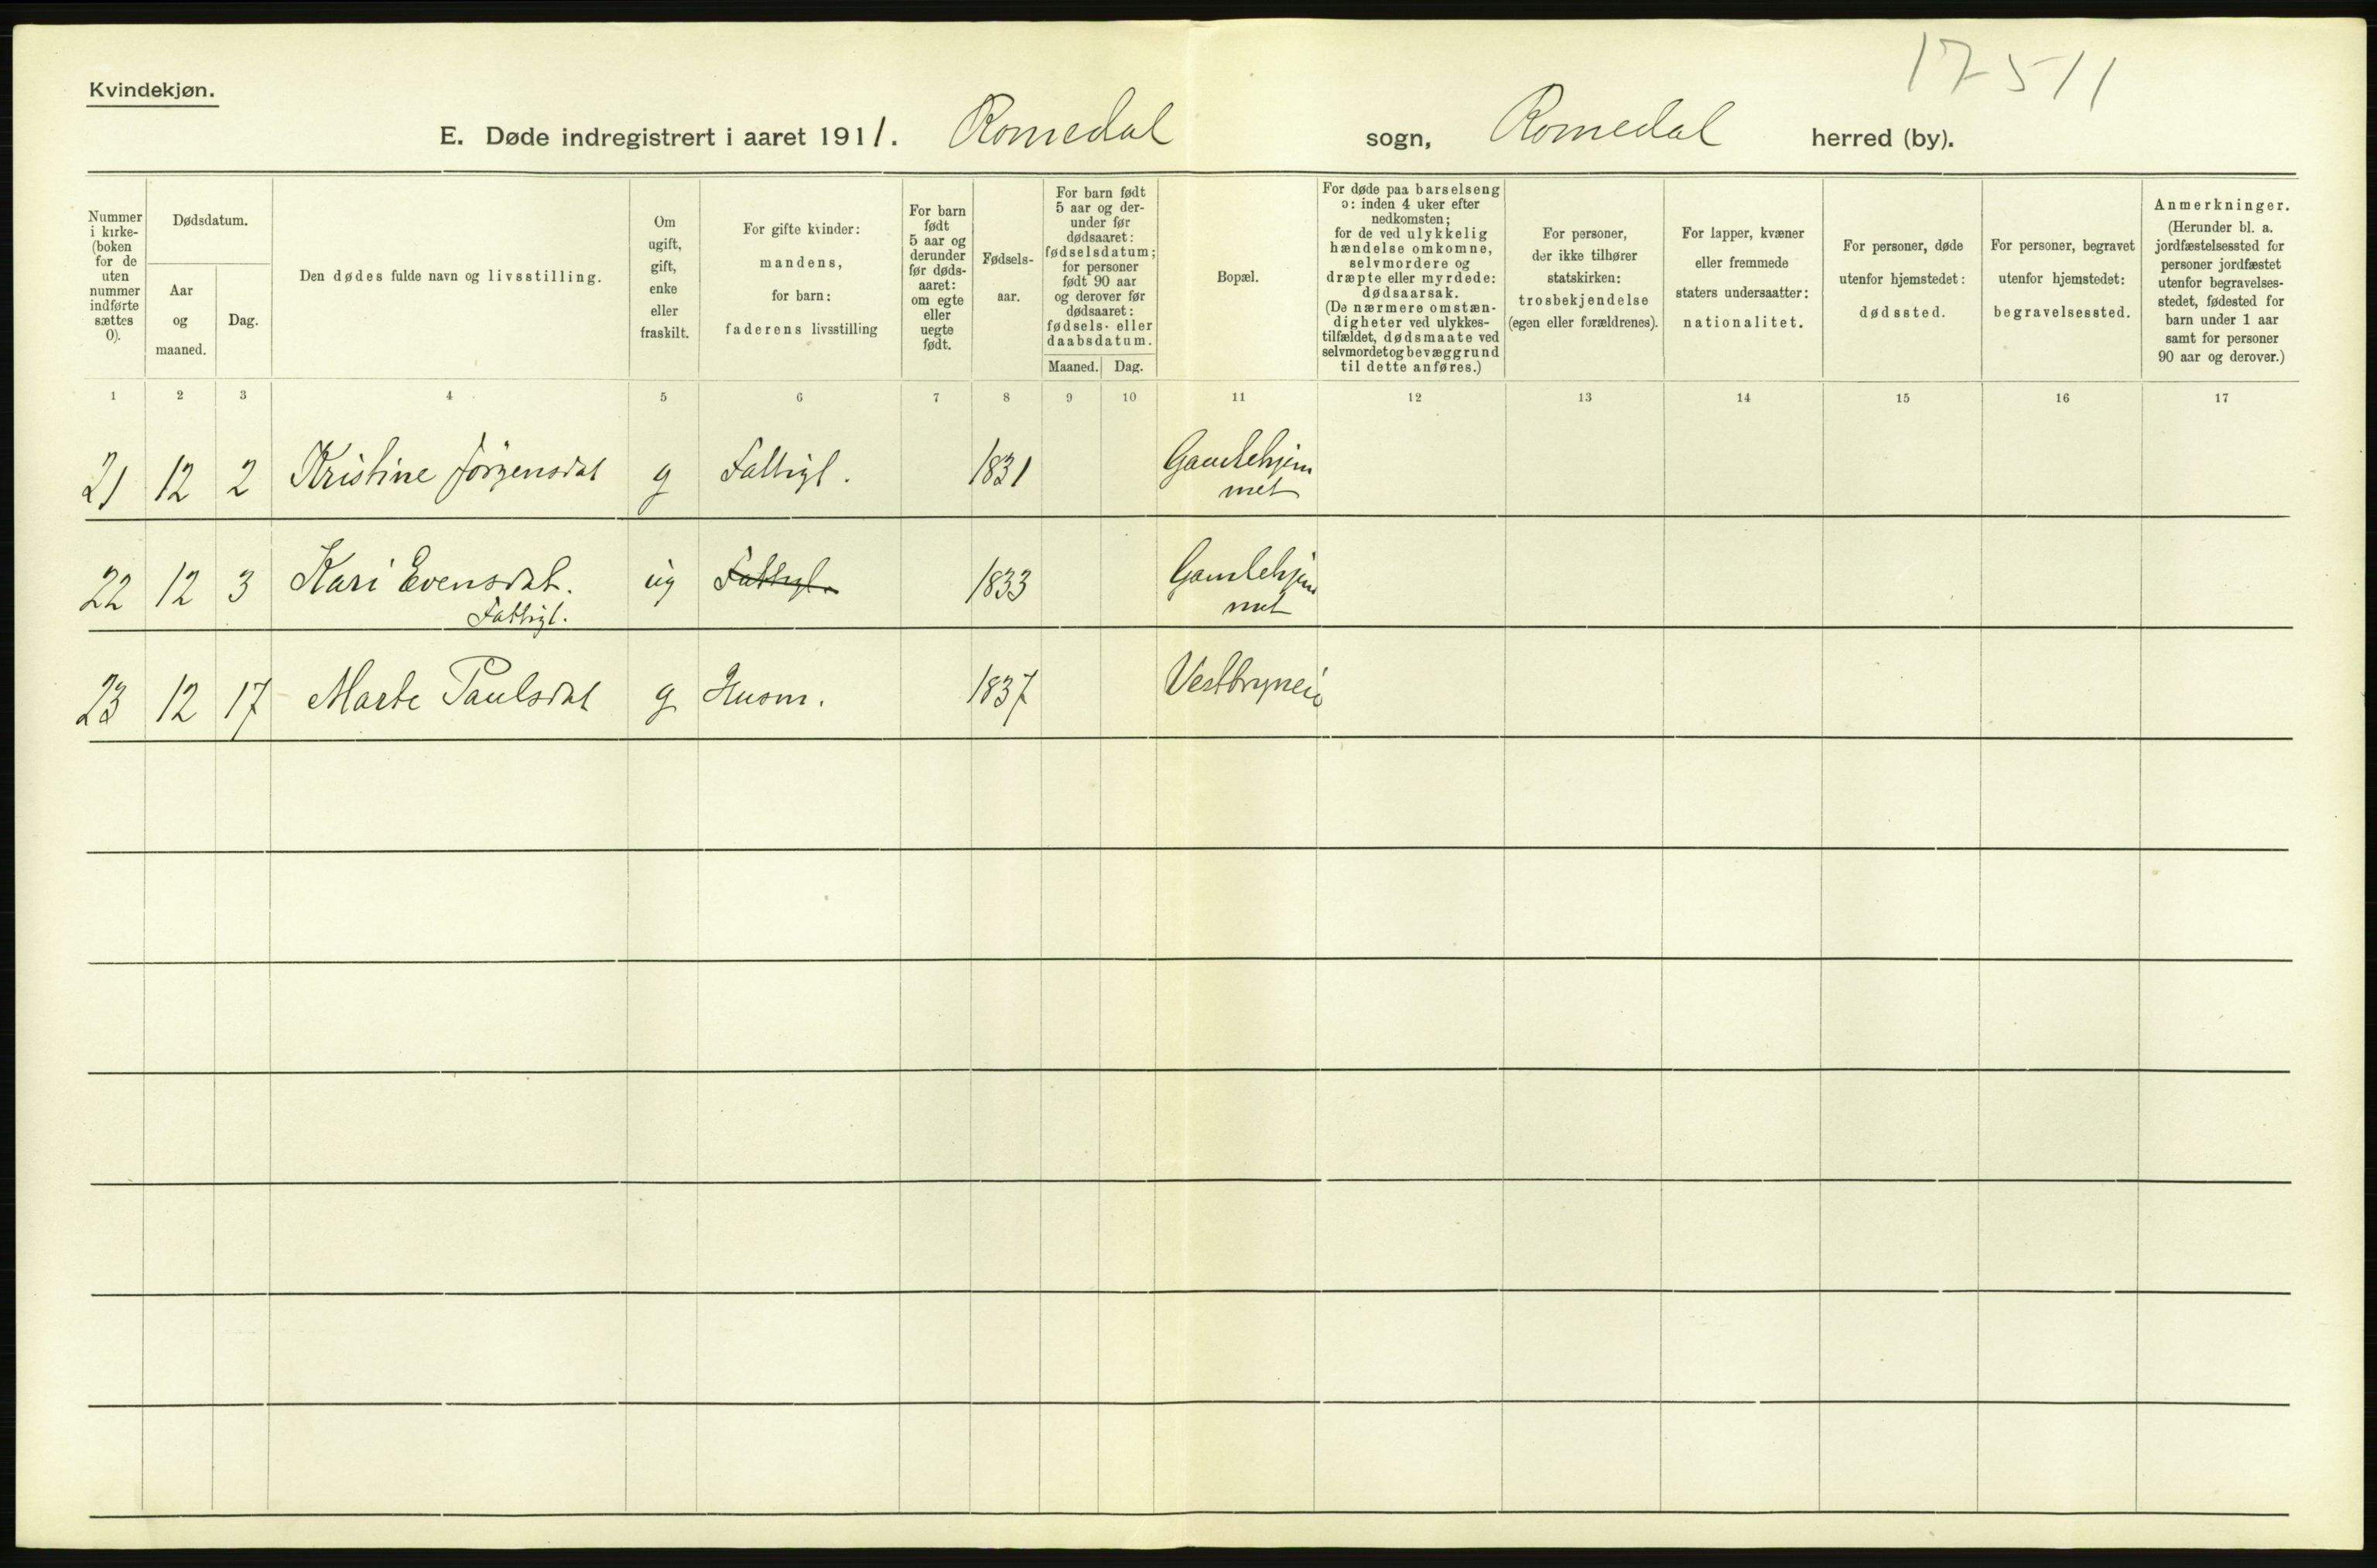 17511
Kvindekjøn.
E. Døde indregistrert i aaret 1911. Romedal sogn, Romedal herred (by).
Nummer
i kirke-
(boken
for de
uten
nummer
indførte
sættes
0).
Dødsdatum.
Aar
og
maaned.
Dag.
Den dødes fulde navn og livsstilling.
Om
ugift,
gift,
enke
eller
fraskilt.
For gifte kvinder:
mandens,
for barn:
faderens livsstilling
For barn
født
5 aar og
derunder
før døds-
aaret:
om egte
eller
uegte
født.
Fødsels-
aar.
For barn født
5 aar og der-
under før
dødsaaret:
fødselsdatum;
for personer
født 90 aar
og derover før
dødsaaret:
fødsels- eller
daabsdatum.
Maaned. Dag.
Bopæl.
For døde paa barselseng
ɔ: inden 4 uker efter
nedkomsten;
for de ved ulykkelig
hændelse omkomne,
selvmordere og
dræpte eller myrdede:
dødsaarsak.
(De nærmere omstæn-
digheter ved ulykkes-
tilfældet, dødsmaate ved
selvmordet og bevæggrund
til dette anføres.)
For personer,
der ikke tilhører
statskirken:
trosbekjendelse
(egen eller forældrenes).
For lapper, kvæner
eller fremmede
staters undersaatter:
nationalitet.
For personer, døde
utenfor hjemstedet:
dødssted.
For personer, begravet
utenfor hjemstedet:
begravelsessted.
Anmerkninger.
(Herunder bl. a.
jordfæstelsessted for
personer jordfæstet
utenfor begravelses-
stedet, fødested for
barn under 1 aar
samt for personer
90 aar og derover.)
1 2 3 4 5 6 7 8 9 10 11 12 13 14 15 16 17
21 12 2 Kristine Jörgensdat g Fattigl. 1831 Gamlehjem
met
22 12 3 Kari Evensdat. ug Fattigl. 1833 Gamlehjem
Fattigl. met
23 12 17 Marte Paulsdat g Husm. 1837 Vestbryneie